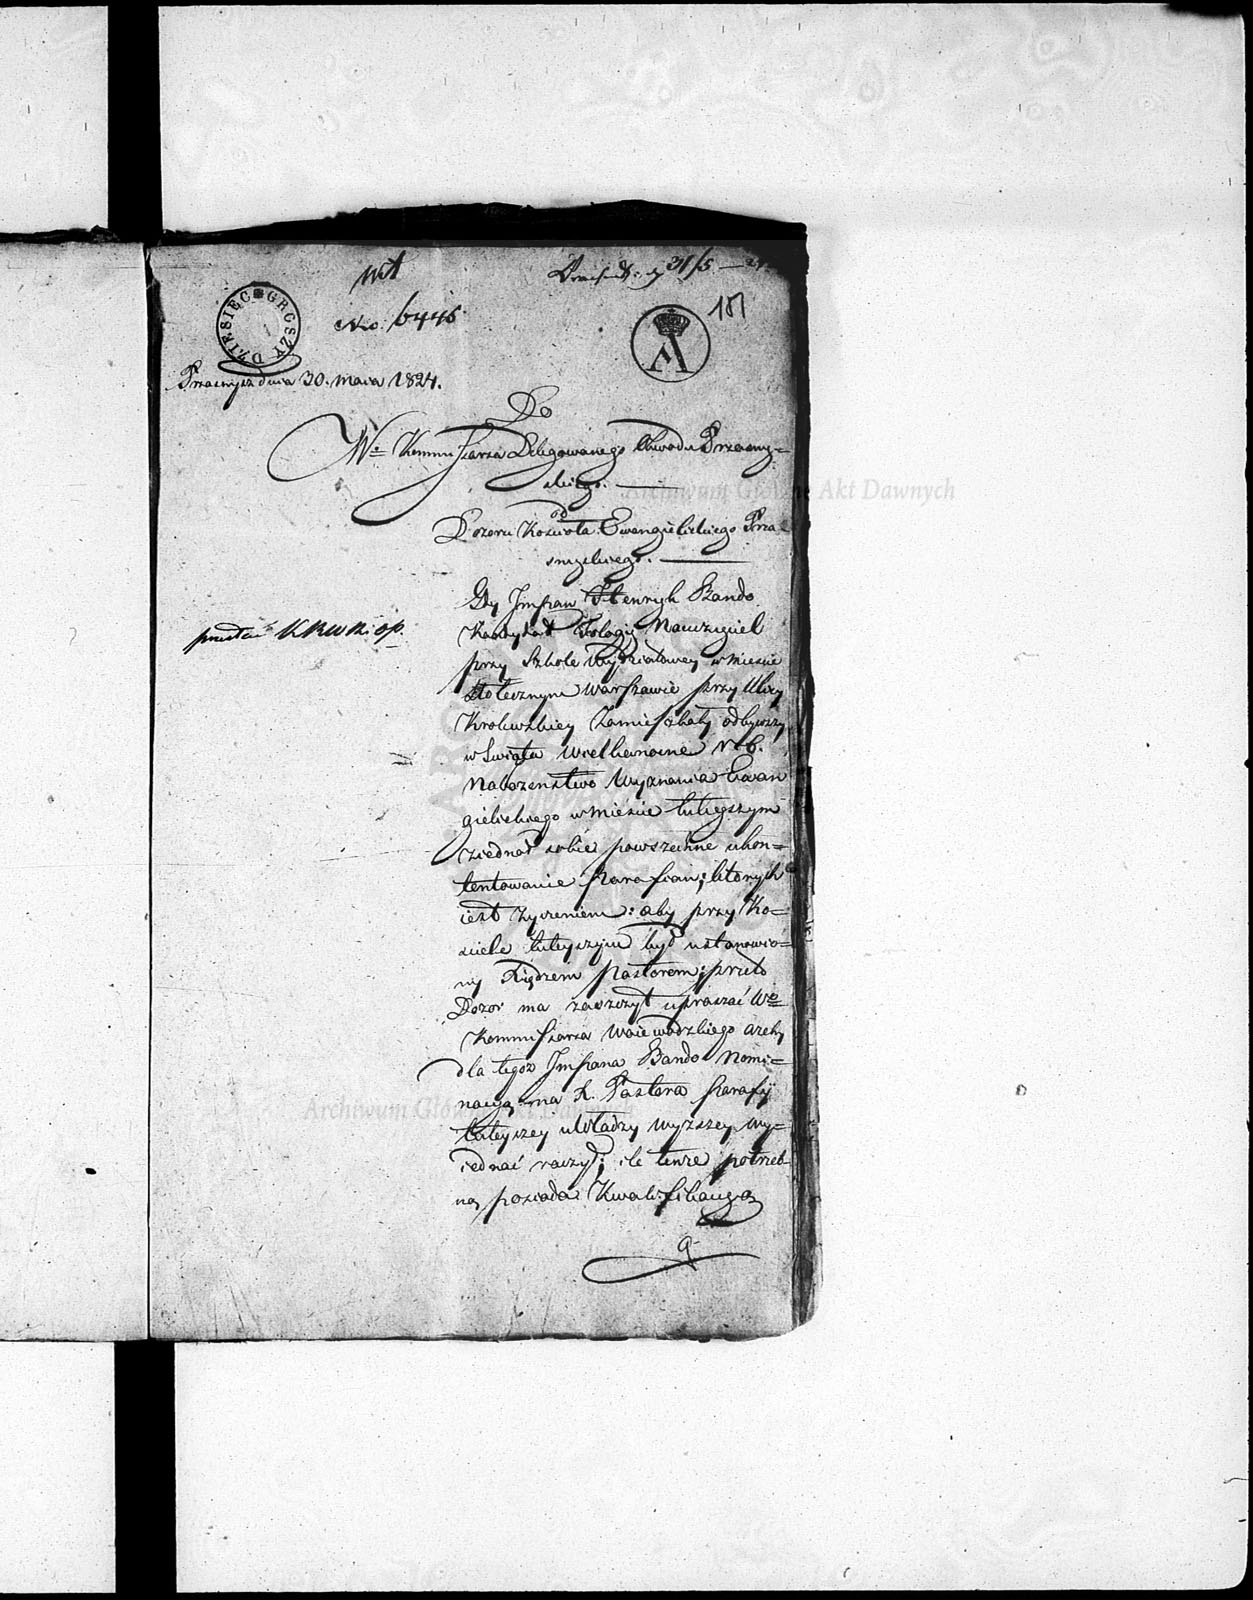 No. 6445
181
DZIESIĘC GROSZY
Przasnysz dnia 30. maia 1824.
Do
Wo Kommissarza Delegowanego Obwodu Przasny=
skiego.
od
Dozoru Kościoła Ewangielickiego Prza
snyskiego.
Gdy Jmpan Henryk Bando
Kandydat Teologii Nauczyciel
przy Szkole Wydziałowey w Mieście
Stołecznym Warszawie przy Ulicy
Krolewskiey Zamieszkały odbywszy
w Swięta Wielkanocne r. b.
Nabozenstwo Wyznania Ewan
gielickiego w Mieście tuteyszym
ziednał sobie powszechne ukon=
tentowanie Parafian; ktorych
iest życzeniem: aby przy Ko=
ściele tuteyszym był ustanowio=
ny Xiędzem Pastorem; przeto
Dozor ma zaszczyt upraszać Wo
Kommissarza Woiewodzkiego ażeby
dla tegoz Jmpana Bando Nomi=
nacyą na X. Pastora Parafii
tuteyszey u Władzy wyzszey wy=
iednać raczył; ile tenże potrzeb
ną posiada Kwalifikacyą
Archiwum Główne Akt Dawnych
Archiwum Główne Akt Dawnych